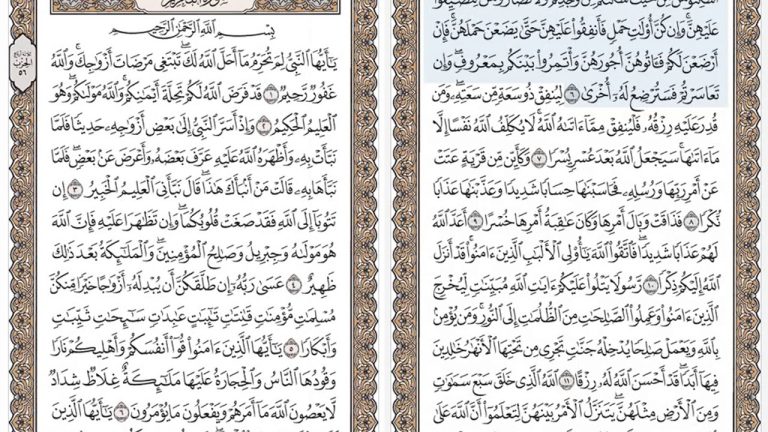 أَسْكِنُوهُنَّ مِنْ حَيْثُ سَكَنتُم مِّن وُجْدِكُمْ وَلَا تُضَآرُّوهُنَّ لِتُضَيِّقُوا۟
عَلَيْهِنَّ ۚ وَإِن كُنَّ أُو۟لَـٰتِ حَمْلٍ فَأَنفِقُوا۟ عَلَيْهِنَّ حَتَّىٰ يَضَعْنَ حَمْلَهُنَّ ۚ فَإِنْ
أَرْضَعْنَ لَكُمْ فَـَٔاتُوهُنَّ أُجُورَهُنَّ ۖ وَأْتَمِرُوا۟ بَيْنَكُم بِمَعْرُوفٍ ۖ وَإِن
تَعَاسَرْتُمْ فَسَتُرْضِعُ لَهُۥٓ أُخْرَىٰ ٦ لِيُنفِقْ ذُو سَعَةٍ مِّن سَعَتِهِۦ ۖ وَمَن
قُدِرَ عَلَيْهِ رِزْقُهُۥ فَلْيُنفِقْ مِمَّآ ءَاتَىٰهُ ٱللَّهُ ۚ لَا يُكَلِّفُ ٱللَّهُ نَفْسًا إِلَّا
مَآ ءَاتَىٰهَا ۚ سَيَجْعَلُ ٱللَّهُ بَعْدَ عُسْرٍ يُسْرًا ٧ وَكَأَيِّن مِّن قَرْيَةٍ عَتَتْ
عَنْ أَمْرِ رَبِّهَا وَرُسُلِهِۦ فَحَاسَبْنَـٰهَا حِسَابًا شَدِيدًا وَعَذَّبْنَـٰهَا عَذَابًا
نُّكْرًا ٨ فَذَاقَتْ وَبَالَ أَمْرِهَا وَكَانَ عَـٰقِبَةُ أَمْرِهَا خُسْرًا ٩ أَعَدَّ ٱللَّهُ
لَهُمْ عَذَابًا شَدِيدًا ۖ فَٱتَّقُوا۟ ٱللَّهَ يَـٰٓأُو۟لِى ٱلْأَلْبَـٰبِ ٱلَّذِينَ ءَامَنُوا۟ ۚ قَدْ أَنزَلَ
ٱللَّهُ إِلَيْكُمْ ذِكْرًا ١٠ رَّسُولًا يَتْلُوا۟ عَلَيْكُمْ ءَايَـٰتِ ٱللَّهِ مُبَيِّنَـٰتٍ لِّيُخْرِجَ
ٱلَّذِينَ ءَامَنُوا۟ وَعَمِلُوا۟ ٱلصَّـٰلِحَـٰتِ مِنَ ٱلظُّلُمَـٰتِ إِلَى ٱلنُّورِ ۚ وَمَن يُؤْمِنۢ
بِٱللَّهِ وَيَعْمَلْ صَـٰلِحًا يُدْخِلْهُ جَنَّـٰتٍ تَجْرِى مِن تَحْتِهَا ٱلْأَنْهَـٰرُ خَـٰلِدِينَ
فِيهَآ أَبَدًا ۖ قَدْ أَحْسَنَ ٱللَّهُ لَهُۥ رِزْقًا ١١ ٱللَّهُ ٱلَّذِى خَلَقَ سَبْعَ سَمَـٰوَٰتٍ
وَمِنَ ٱلْأَرْضِ مِثْلَهُنَّ يَتَنَزَّلُ ٱلْأَمْرُ بَيْنَهُنَّ لِتَعْلَمُوٓا۟ أَنَّ ٱللَّهَ عَلَىٰ
سُورَةُ ٱلتَّحْرِيمِ
بِسْمِ ٱللَّهِ ٱلرَّحْمَـٰنِ ٱلرَّحِيمِ
يَـٰٓأَيُّهَا ٱلنَّبِىُّ لِمَ تُحَرِّمُ مَآ أَحَلَّ ٱللَّهُ لَكَ ۖ تَبْتَغِى مَرْضَاتَ أَزْوَٰجِكَ ۚ وَٱللَّهُ
غَفُورٌ رَّحِيمٌ ١ قَدْ فَرَضَ ٱللَّهُ لَكُمْ تَحِلَّةَ أَيْمَـٰنِكُمْ ۚ وَٱللَّهُ مَوْلَىٰكُمْ ۖ وَهُوَ
ٱلْعَلِيمُ ٱلْحَكِيمُ ٢ وَإِذْ أَسَرَّ ٱلنَّبِىُّ إِلَىٰ بَعْضِ أَزْوَٰجِهِۦ حَدِيثًا فَلَمَّا
نَبَّأَتْ بِهِۦ وَأَظْهَرَهُ ٱللَّهُ عَلَيْهِ عَرَّفَ بَعْضَهُۥ وَأَعْرَضَ عَنۢ بَعْضٍ ۖ فَلَمَّا
نَبَّأَهَا بِهِۦ قَالَتْ مَنْ أَنۢبَأَكَ هَـٰذَا ۖ قَالَ نَبَّأَنِىَ ٱلْعَلِيمُ ٱلْخَبِيرُ ٣ إِن
تَتُوبَآ إِلَى ٱللَّهِ فَقَدْ صَغَتْ قُلُوبُكُمَا ۖ وَإِن تَظَـٰهَرَا عَلَيْهِ فَإِنَّ ٱللَّهَ
هُوَ مَوْلَىٰهُ وَجِبْرِيلُ وَصَـٰلِحُ ٱلْمُؤْمِنِينَ ۖ وَٱلْمَلَـٰٓئِكَةُ بَعْدَ ذَٰلِكَ
ظَهِيرٌ ٤ عَسَىٰ رَبُّهُۥٓ إِن طَلَّقَكُنَّ أَن يُبْدِلَهُۥٓ أَزْوَٰجًا خَيْرًا مِّنكُنَّ
مُسْلِمَـٰتٍ مُّؤْمِنَـٰتٍ قَـٰنِتَـٰتٍ تَـٰٓئِبَـٰتٍ عَـٰبِدَٰتٍ سَـٰٓئِحَـٰتٍ ثَيِّبَـٰتٍ
وَأَبْكَارًا ٥ يَـٰٓأَيُّهَا ٱلَّذِينَ ءَامَنُوا۟ قُوٓا۟ أَنفُسَكُمْ وَأَهْلِيكُمْ نَارًا
وَقُودُهَا ٱلنَّاسُ وَٱلْحِجَارَةُ عَلَيْهَا مَلَـٰٓئِكَةٌ غِلَاظٌ شِدَادٌ
لَّا يَعْصُونَ ٱللَّهَ مَآ أَمَرَهُمْ وَيَفْعَلُونَ مَا يُؤْمَرُونَ ٦ يَـٰٓأَيُّهَا ٱلَّذِينَ
ثلاثة أرباع
الحزب
٥٦